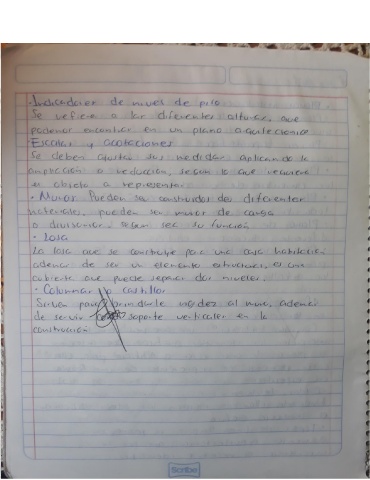 · Indicadores de nivel de piso
Se refiere a las diferentes alturas, que
podemos encontrar en un plano arquitectonico
Escalas y acotaciones
Se deben ajustar sus medidas aplicando la
ampliación o reducción, segun lo que requiera
el objeto a representar
· Muros Pueden ser construidos de diferentes
materiales, pueden ser muros de carga
o divisorios segun sea su función
· Losa
La losa que se construye para una casa habitación
ademas de ser un elemento estructural, es una
cubierta que puede separar dos niveles.
· Columnas o castillos
Sirven para brindarle rigidez al muro, ademas
de servir soporte verticales en la
construcción
Scribe